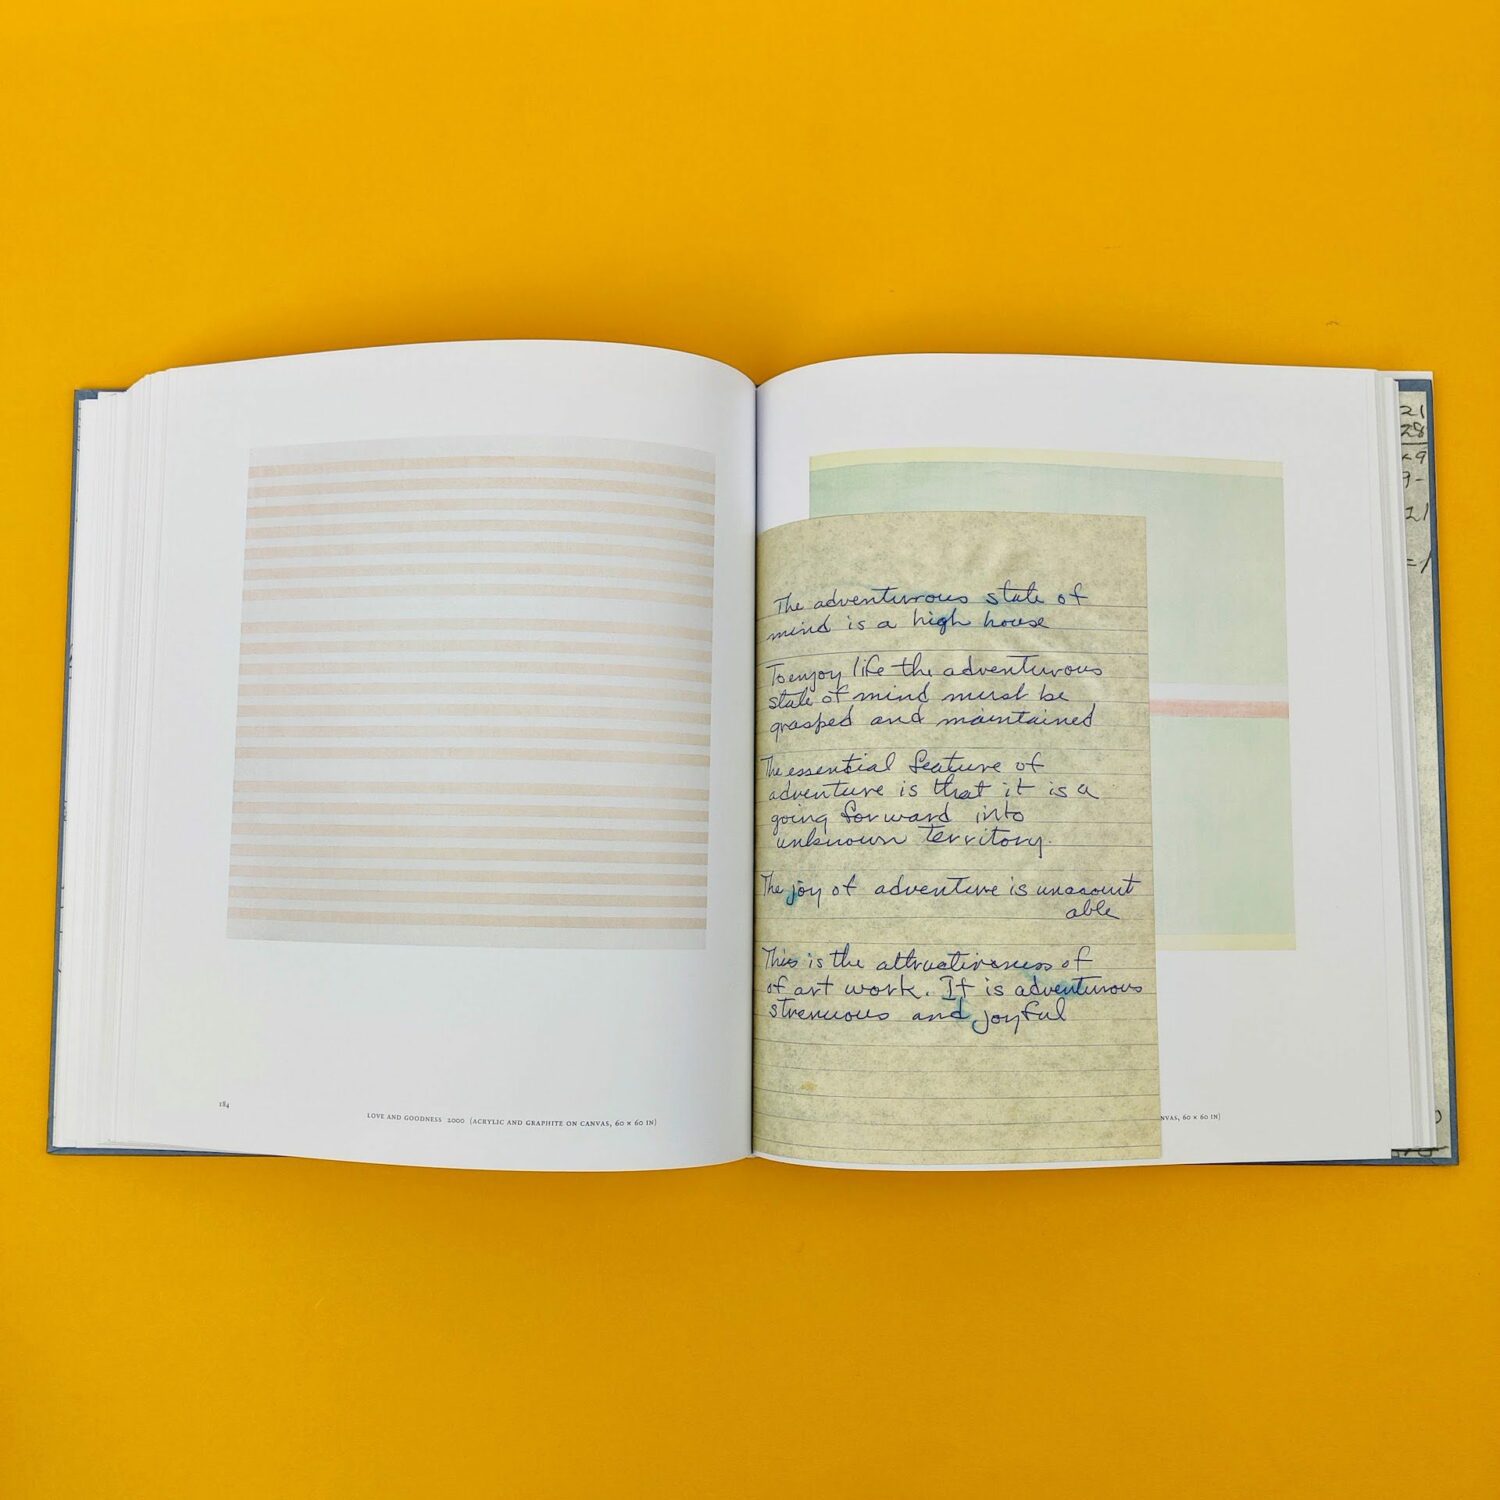 184
LOVE AND GOODNESS 2000 (ACRYLIC AND GRAPHITE ON CANVAS, 60 × 60 IN)
The adventurous state of
mind is a high house
To enjoy life the adventurous
state of mind must be
grasped and maintained
The essential feature of
adventure is that it is a
going forward into
unknown territory.
The joy of adventure is unaccount
able
This is the attractiveness of
of art work. It is adventurous
strenuous and joyful
NVAS, 60 × 60 IN)
21
28